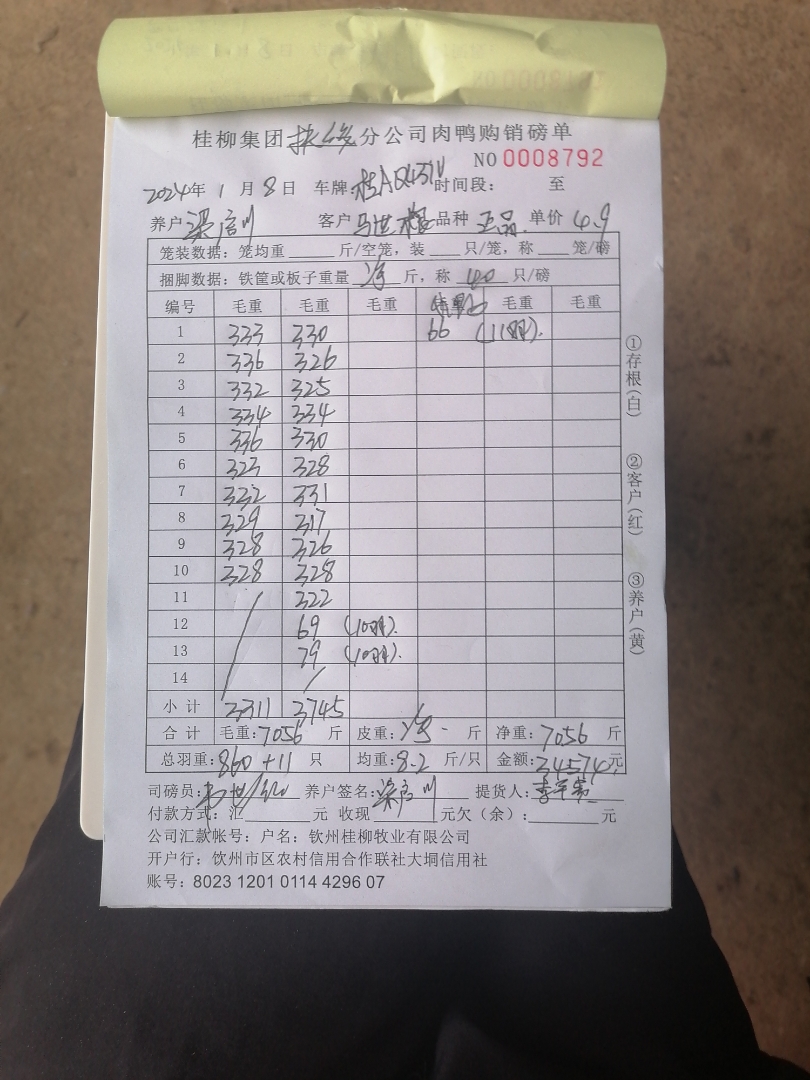 桂柳集团 分公司肉鸭购销磅单
NO 0008792
2024年 1 月 8 日 车牌: 时间段: 至
养户 梁 川 客户 马世 品种 正品. 单价 4.9
笼装数据: 笼均重 斤/空笼, 装 只/笼, 称 笼/磅
捆脚数据: 铁筐或板子重量 净 斤, 称 40 只/磅
编号 毛重 毛重 毛重 毛重 毛重
1 333 330 66 (11羽).
2 336 326
3 332 325
4 334 334
5 336 330
6 323 328
7 332 331
8 329 317
9 328 326
10 328 328
11 322
12 69 (10羽).
13 79 (10羽).
14
小计 3311 3745
合计 毛重: 7056 斤 皮重: 净 斤 净重: 7056 斤
总羽重: 860+11 只 均重: 8.2 斤/只 金额: 34574元
司磅员: 养户签名: 梁 川 提货人: 李
付款方式: 汇 元 收现 元欠(余): 元
公司汇款帐号: 户名: 钦州桂柳牧业有限公司
开户行: 饮州市区农村信用合作联社大垌信用社
账号: 8023 1201 0114 4296 07
①存根(白)
②客户(红)
③养户(黄)